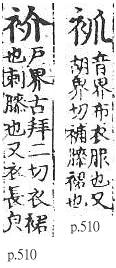 音界布衣服也又
胡界切補膝裙也
p.510
衸
戸界古拜二切衣裙
也刺膝也又衣長皃
p.510